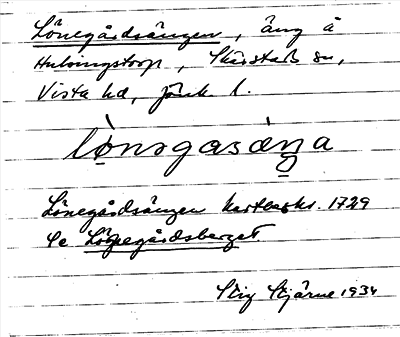 Lönegårdsängen, äng å
Hulvingstorp, Skärstads sn,
Vista hd, Jönk l.
lònsgasäŋa
Lönegårdsängen Kartbeskr. 1729
Se Lönegårdsberget
Stig Stjärne 1934